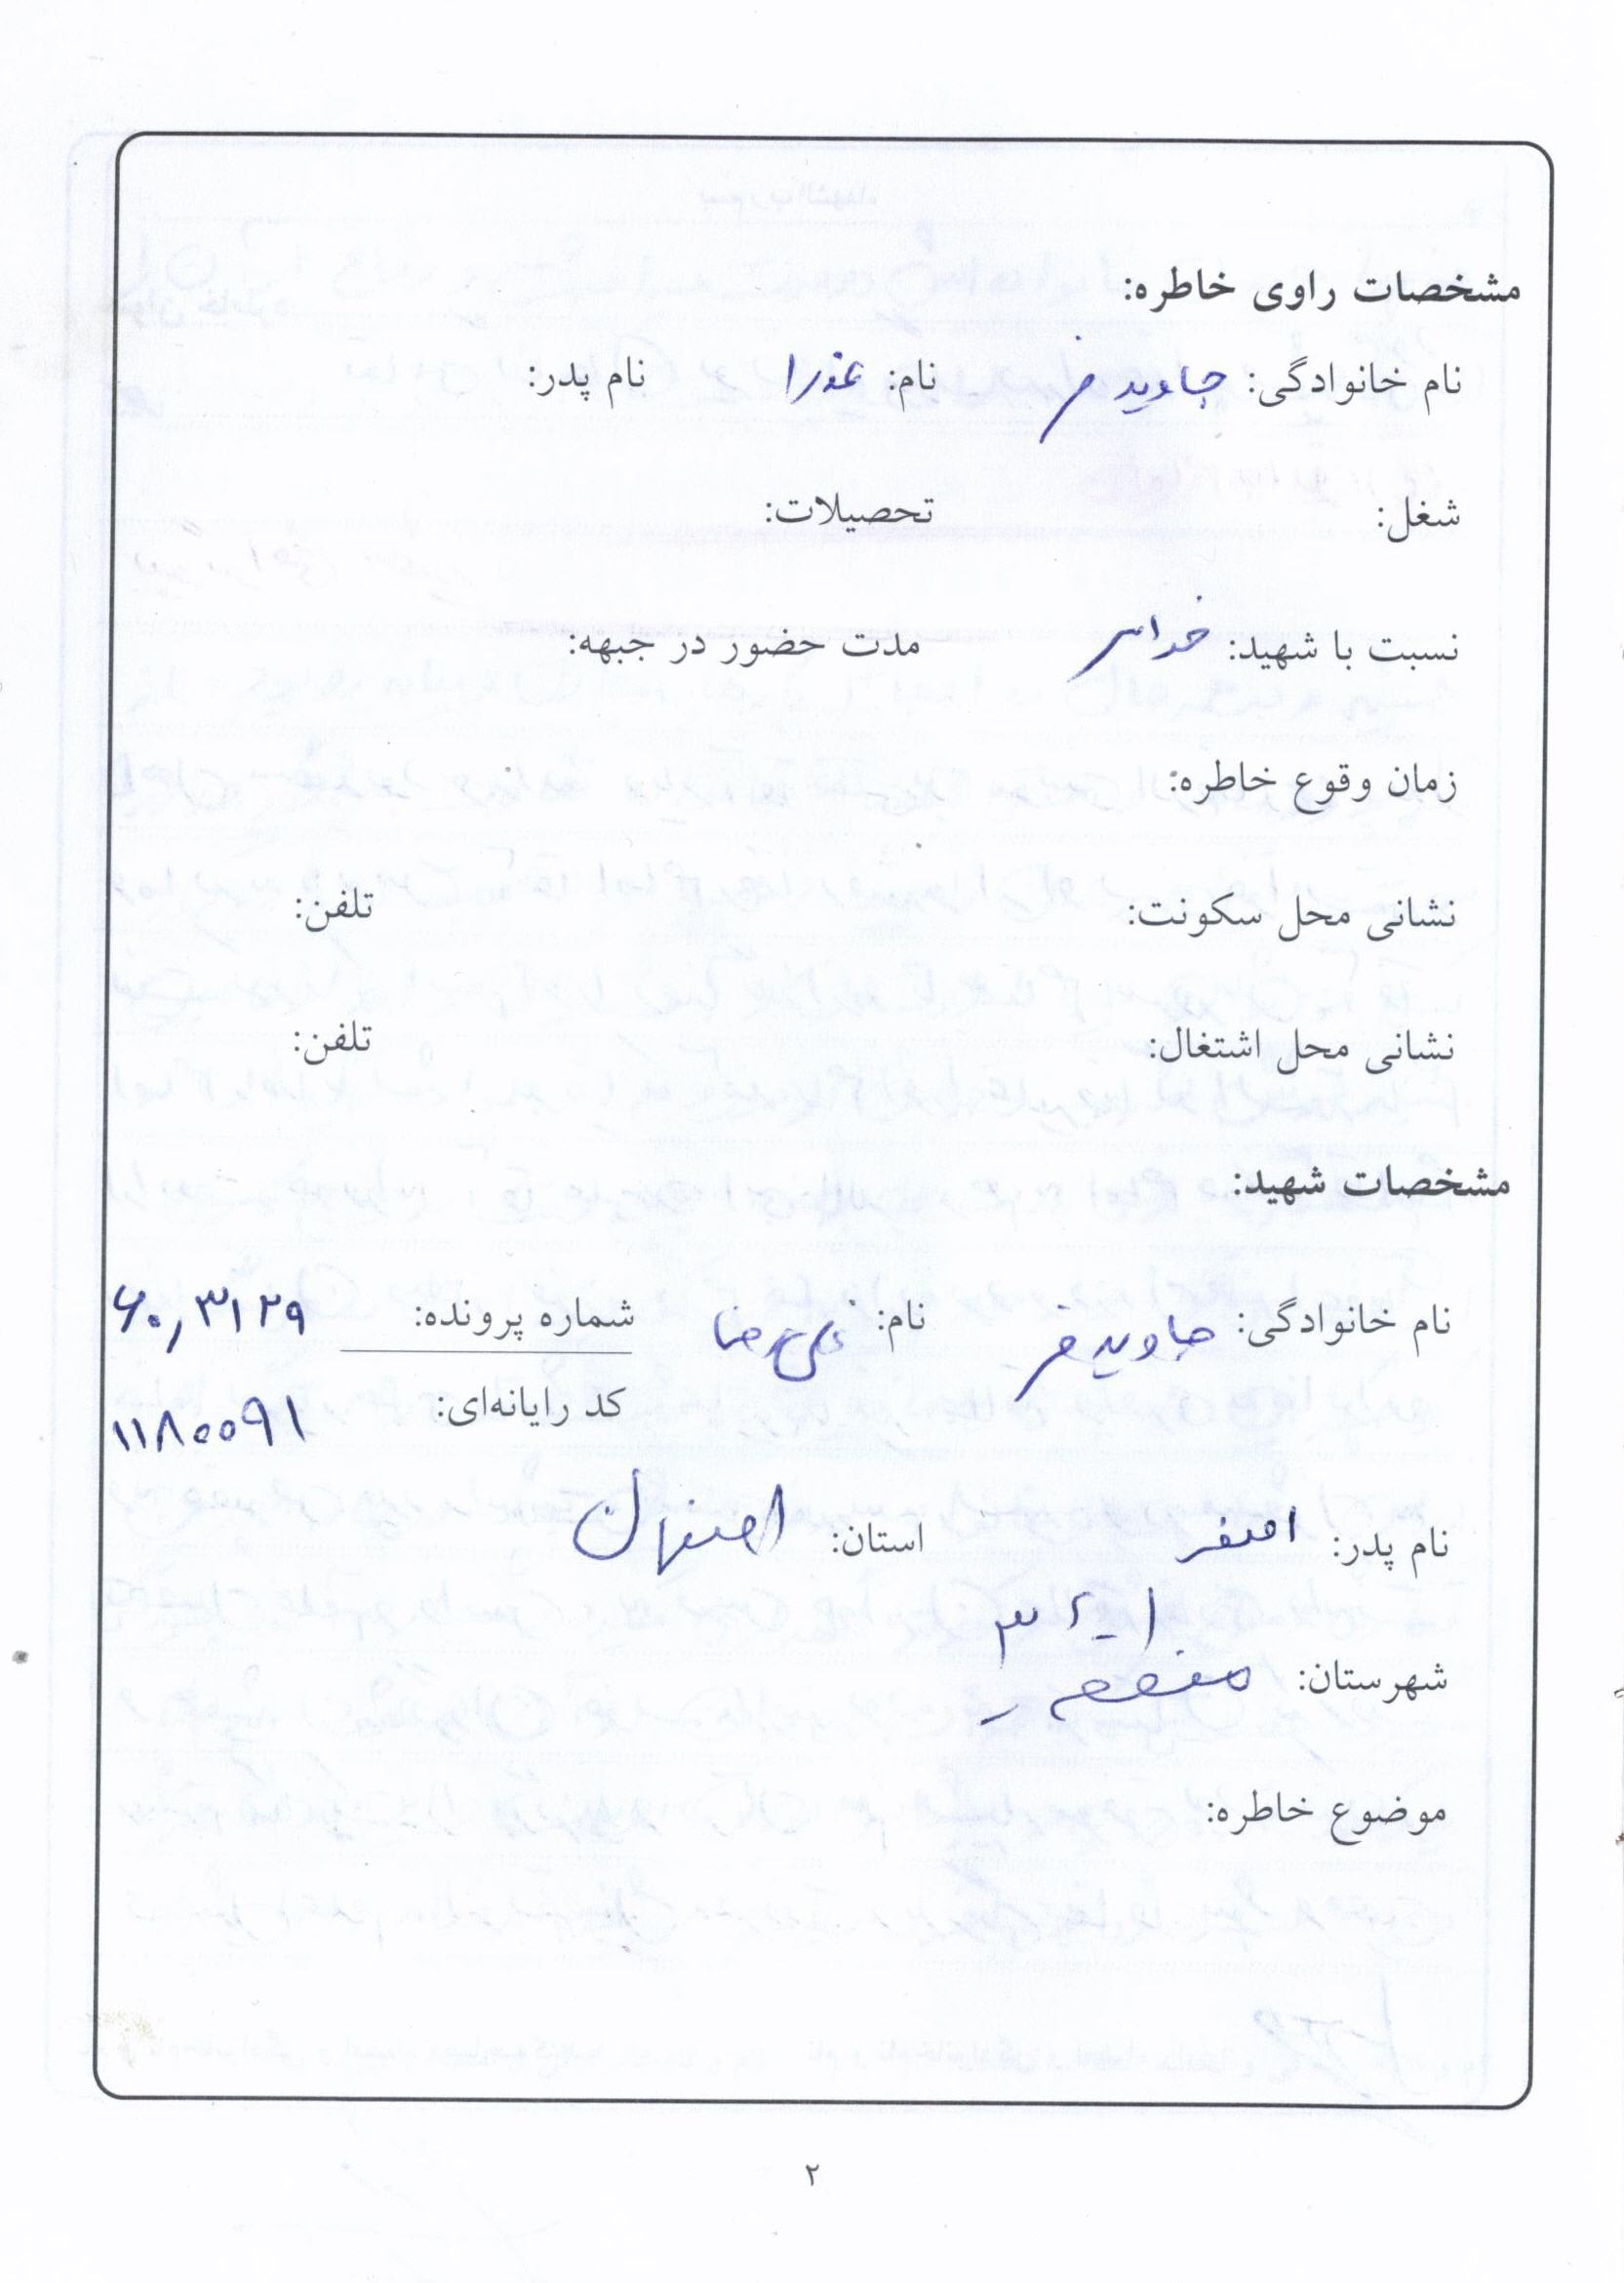 مشخصات راوی خاطره:
نام خانوادگی: جاوید فر نام: عذرا نام پدر:
شغل: تحصیلات:
نسبت با شهید: خواهر مدت حضور در جبهه:
زمان وقوع خاطره:
نشانی محل سکونت: تلفن:
نشانی محل اشتغال: تلفن:
مشخصات شهید:
نام خانوادگی: جاوید فر نام: علیرضا شماره پرونده: ۶۰٫۳۱۲۹
کد رایانه‌ای: ۱۱۸۰۰۹۱
نام پدر: اصغر استان: اصفهان
شهرستان:
موضوع خاطره:
۲